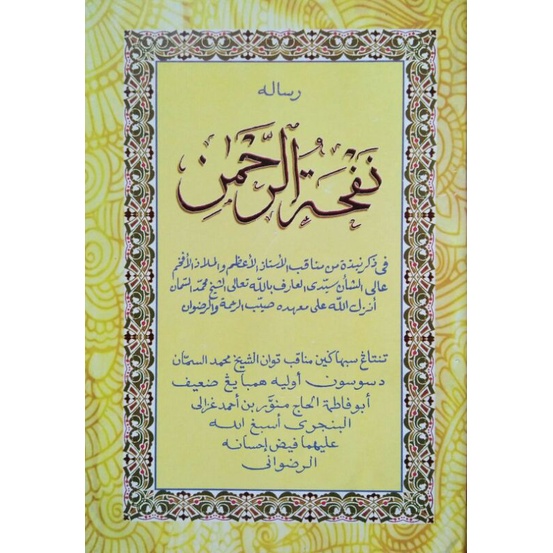 رساله
نفحة الرحمن
فى ذكر نبذة من مناقب الأستاذ الأعظم والملاذ الأفخم
عالى الشأن سيّدى العارف بالله تعالى الشيخ محمد السمّان
أنزل الله على معهده صيّب الرحمة والرضوان
تنتاڠ سبهاڬين مناقب توان الشيخ محمد السمّان
دسوسون أوليه همبا يڠ ضعيف
أبو فاطمة الحاج منوّر بن أحمد غزالى
البنجرى أسبغ الله
عليهما فيض إحسانه
الرضوانى